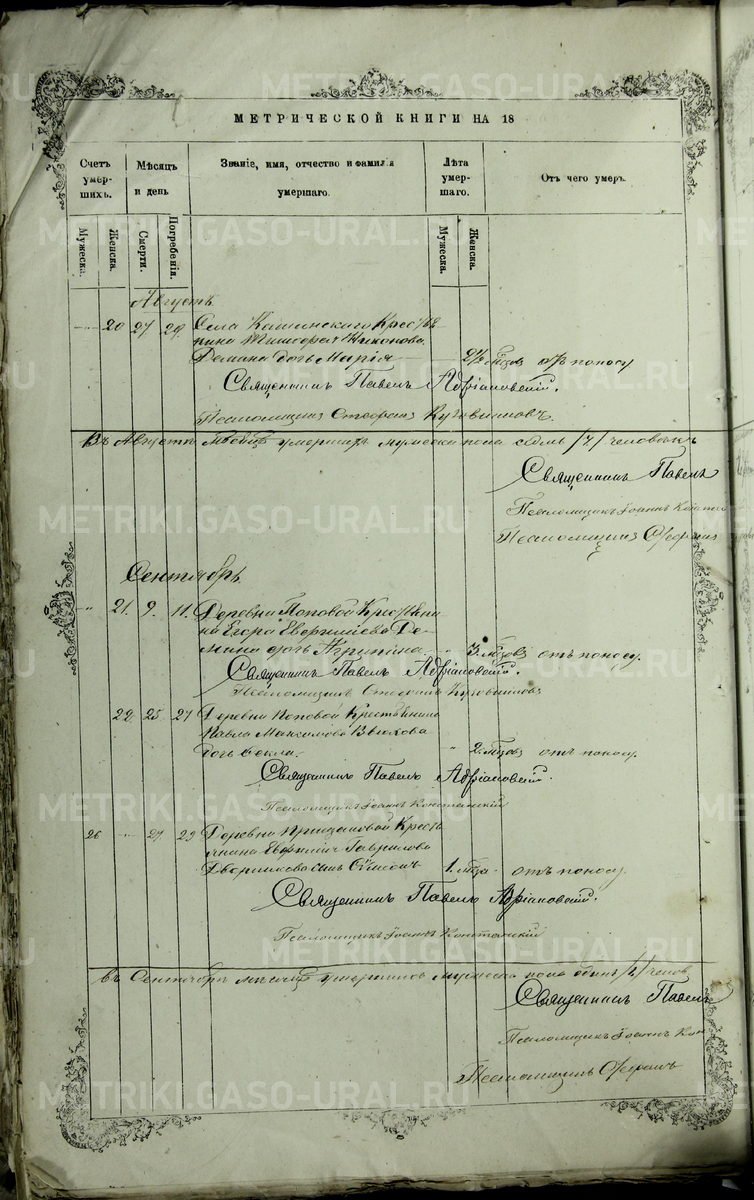 МЕТРИЧЕСКОЙ КНИГИ НА 18
Счетъ умер- шихъ.
Мѣсяцъ и день
Званіе, имя, отчество и фамилія умершаго.
Лѣта умер- шаго.
Отъ чего умеръ.
Мужеска. Женска. Смерти. Погребенія. Мужеска. Женска.
Августъ.
20 27 29. Села Кашинскаго Крестья
нина Никонова
дочь Марія 2½ мѣсяцъ отъ поносу
Священникъ Павелъ Адріановскій.
Псаломщикъ Стефанъ
Въ Августѣ мѣсяцѣ умершихъ мужеска пола семь /7/ человѣкъ
Священникъ Павелъ
Псаломщикъ Іоаннъ
Псаломщикъ Стефанъ
Сентябрь.
21. 9. 11. Деревни Поповой Крестьяни
на Егора Евфиміева Де-
мина дочь Агрипина. 3. мѣсяцъ отъ поносу.
Священникъ Павелъ Адріановскій.
Псаломщикъ Стефанъ
22. 25. 27 Деревни Поповой Крестьянина
Павла Максимова
дочь Фекла. 2. мѣсяцъ отъ поносу.
Священникъ Павелъ Адріановскій.
Псаломщикъ Іоаннъ Константскій
26 27 29 Деревни Крестья
янина Евфимія Гаврилова
Дворникова сынъ Симеонъ 1. мѣсяца отъ поносу.
Священникъ Павелъ Адріановскій.
Псаломщикъ Іоаннъ Константскій
Въ Сентябрѣ мѣсяцѣ умершихъ мужеска пола одинъ /1/ человѣкъ
Священникъ Павелъ
Псаломщикъ Іоаннъ Кон
Псаломщикъ Стефанъ
METRIKI.GASO-URAL.RU